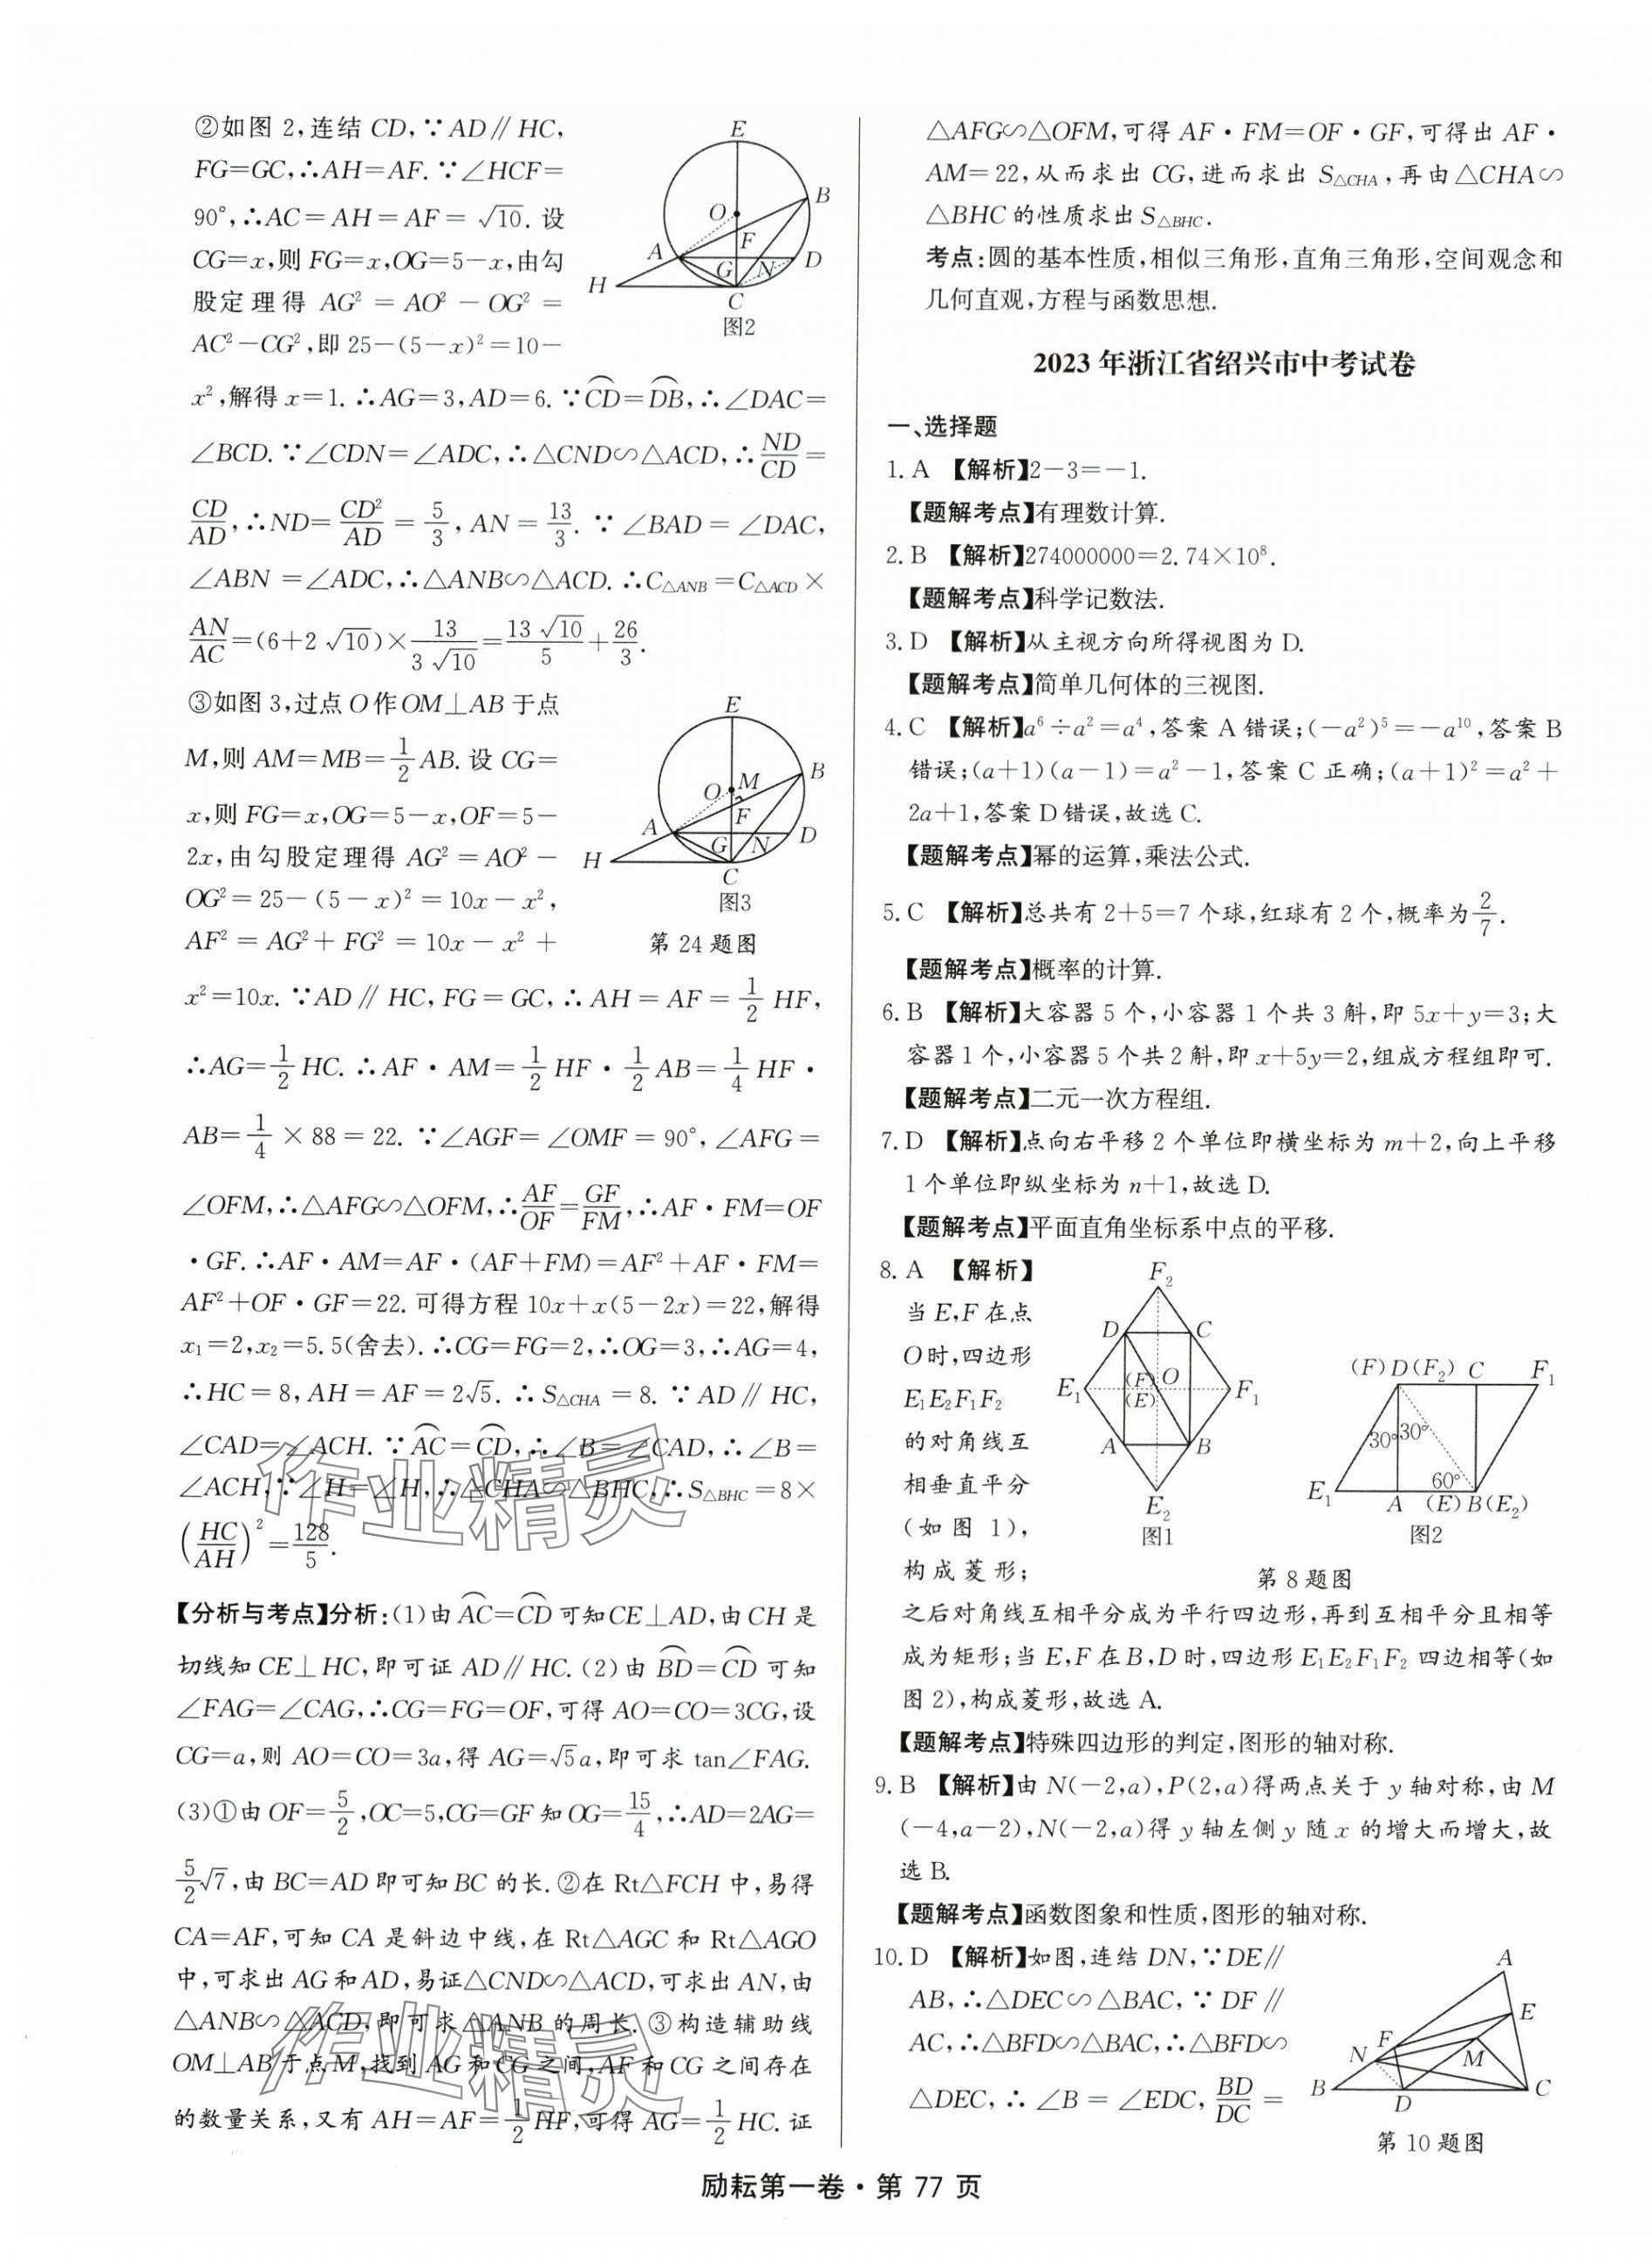 ②如图 2,连结 CD,∵AD∥HC,
FG=GC,∴AH=AF.∵∠HCF=
90°,∴AC=AH=AF=√10. 设
CG=x,则 FG=x,OG=5-x,由勾
股定理得 AG²=AO²-OG²=
AC²-CG²,即 25-(5-x)²=10-
x²,解得 x=1.∴AG=3,AD=6.∵⌒CD=⌒DB,∴∠DAC=
∠BCD.∵∠CDN=∠ADC,∴△CND∽△ACD,∴ND/CD=
CD/AD,∴ND=CD²/AD=5/3,AN=13/3.∵∠BAD=∠DAC,
∠ABN=∠ADC,∴△ANB∽△ACD.∴C△ANB=C△ACD×
AN/AC=(6+2√10)×13/(3√10)=13√10/5+26/3.
E
B
O
F
A
G
N
D
H
C
图2
③如图 3,过点 O 作 OM⊥AB 于点
M,则 AM=MB=1/2 AB. 设 CG=
x,则 FG=x,OG=5-x,OF=5-
2x,由勾股定理得 AG²=AO²-
OG²=25-(5-x)²=10x-x²,
AF²=AG²+FG²=10x-x²+
x²=10x.∵AD∥HC,FG=GC,∴AH=AF=1/2 HF,
∴AG=1/2 HC.∴AF·AM=1/2 HF·1/2 AB=1/4 HF·
AB=1/4×88=22.∵∠AGF=∠OMF=90°,∠AFG=
∠OFM,∴△AFG∽△OFM,∴AF/OF=GF/FM,∴AF·FM=OF
·GF.∴AF·AM=AF·(AF+FM)=AF²+AF·FM=
AF²+OF·GF=22.可得方程 10x+x(5-2x)=22,解得
x₁=2,x₂=5.5(舍去).∴CG=FG=2,∴OG=3,∴AG=4,
∴HC=8,AH=AF=2√5.∴S△CHA=8.∵AD∥HC,
∠CAD=∠ACH.∵⌒AC=⌒CD,∴∠B=∠CAD,∴∠B=
∠ACH,∵∠H=∠H,∴△CHA∽△BHC,∴S△BHC=8×
(HC/AH)²=128/5.
E
O
M
B
A
F
G
N
D
H
C
图3
第 24 题图
【分析与考点】分析:(1)由⌒AC=⌒CD可知CE⊥AD,由CH是
切线知CE⊥HC,即可证 AD∥HC.(2)由⌒BD=⌒CD可知
∠FAG=∠CAG,∴CG=FG=OF,可得 AO=CO=3CG,设
CG=a,则 AO=CO=3a,得 AG=√5a,即可求 tan∠FAG.
(3)①由 OF=5/2,OC=5,CG=GF 知 OG=15/4,∴AD=2AG=
5/2√7,由 BC=AD 即可知 BC 的长.②在 Rt△FCH 中,易得
CA=AF,可知 CA 是斜边中线,在 Rt△AGC 和 Rt△AGO
中,可求出 AG 和 AD,易证△CND∽△ACD,可求出 AN,由
△ANB∽△ACD,即可求△ANB 的周长.③构造辅助线
OM⊥AB 于点 M,找到 AG 和 CG 之间,AF 和 CG 之间存在
的数量关系,又有 AH=AF=1/2 HF,可得 AG=1/2 HC.证
△AFG∽△OFM,可得 AF·FM=OF·GF,可得出 AF·
AM=22,从而求出 CG,进而求出 S△CHA,再由△CHA∽
△BHC 的性质求出 S△BHC.
考点:圆的基本性质,相似三角形,直角三角形,空间观念和
几何直观,方程与函数思想.
2023 年浙江省绍兴市中考试卷
一、选择题
1. A 【解析】2-3=-1.
【题解考点】有理数计算.
2. B 【解析】274000000=2.74×10⁸.
【题解考点】科学记数法.
3. D 【解析】从主视方向所得视图为 D.
【题解考点】简单几何体的三视图.
4. C 【解析】a⁶÷a²=a⁴,答案 A 错误;(-a²)⁵=-a¹⁰,答案 B
错误;(a+1)(a-1)=a²-1,答案 C 正确;(a+1)²=a²+
2a+1,答案 D 错误,故选 C.
【题解考点】幂的运算,乘法公式.
5. C 【解析】总共有 2+5=7 个球,红球有 2 个,概率为2/7.
【题解考点】概率的计算.
6. B 【解析】大容器 5 个,小容器 1 个共 3 斛,即 5x+y=3;大
容器 1 个,小容器 5 个共 2 斛,即 x+5y=2,组成方程组即可.
【题解考点】二元一次方程组.
7. D 【解析】点向右平移 2 个单位即横坐标为 m+2,向上平移
1 个单位即纵坐标为 n+1,故选 D.
【题解考点】平面直角坐标系中点的平移.
8. A 【解析】
当 E,F 在点
O 时,四边形
E₁E₂F₁F₂
的对角线互
相垂直平分
(如图 1),
构成菱形;
F₂
D
C
E₁
(F)
O
(E)
F₁
A
B
E₂
图1
(F)D(F₂) C F₁
30°
30°
60°
E₁ A (E)B(E₂)
图2
第 8 题图
之后对角线互相平分成为平行四边形,再到互相平分且相等
成为矩形;当 E,F 在 B,D 时,四边形 E₁E₂F₁F₂ 四边相等(如
图 2),构成菱形,故选 A.
【题解考点】特殊四边形的判定,图形的轴对称.
9. B 【解析】由 N(-2,a),P(2,a)得两点关于 y 轴对称,由 M
(-4,a-2),N(-2,a)得 y 轴左侧 y 随 x 的增大而增大,故
选 B.
【题解考点】函数图象和性质,图形的轴对称.
10. D 【解析】如图,连结 DN,∵DE∥
AB,∴△DEC∽△BAC,∵DF∥
AC,∴△BFD∽△BAC,∴△BFD∽
△DEC,∴∠B=∠EDC,BD/DC=
A
E
F
N
M
B
D
C
第 10 题图
作业精灵
作业精灵
励耘第一卷·第 77 页